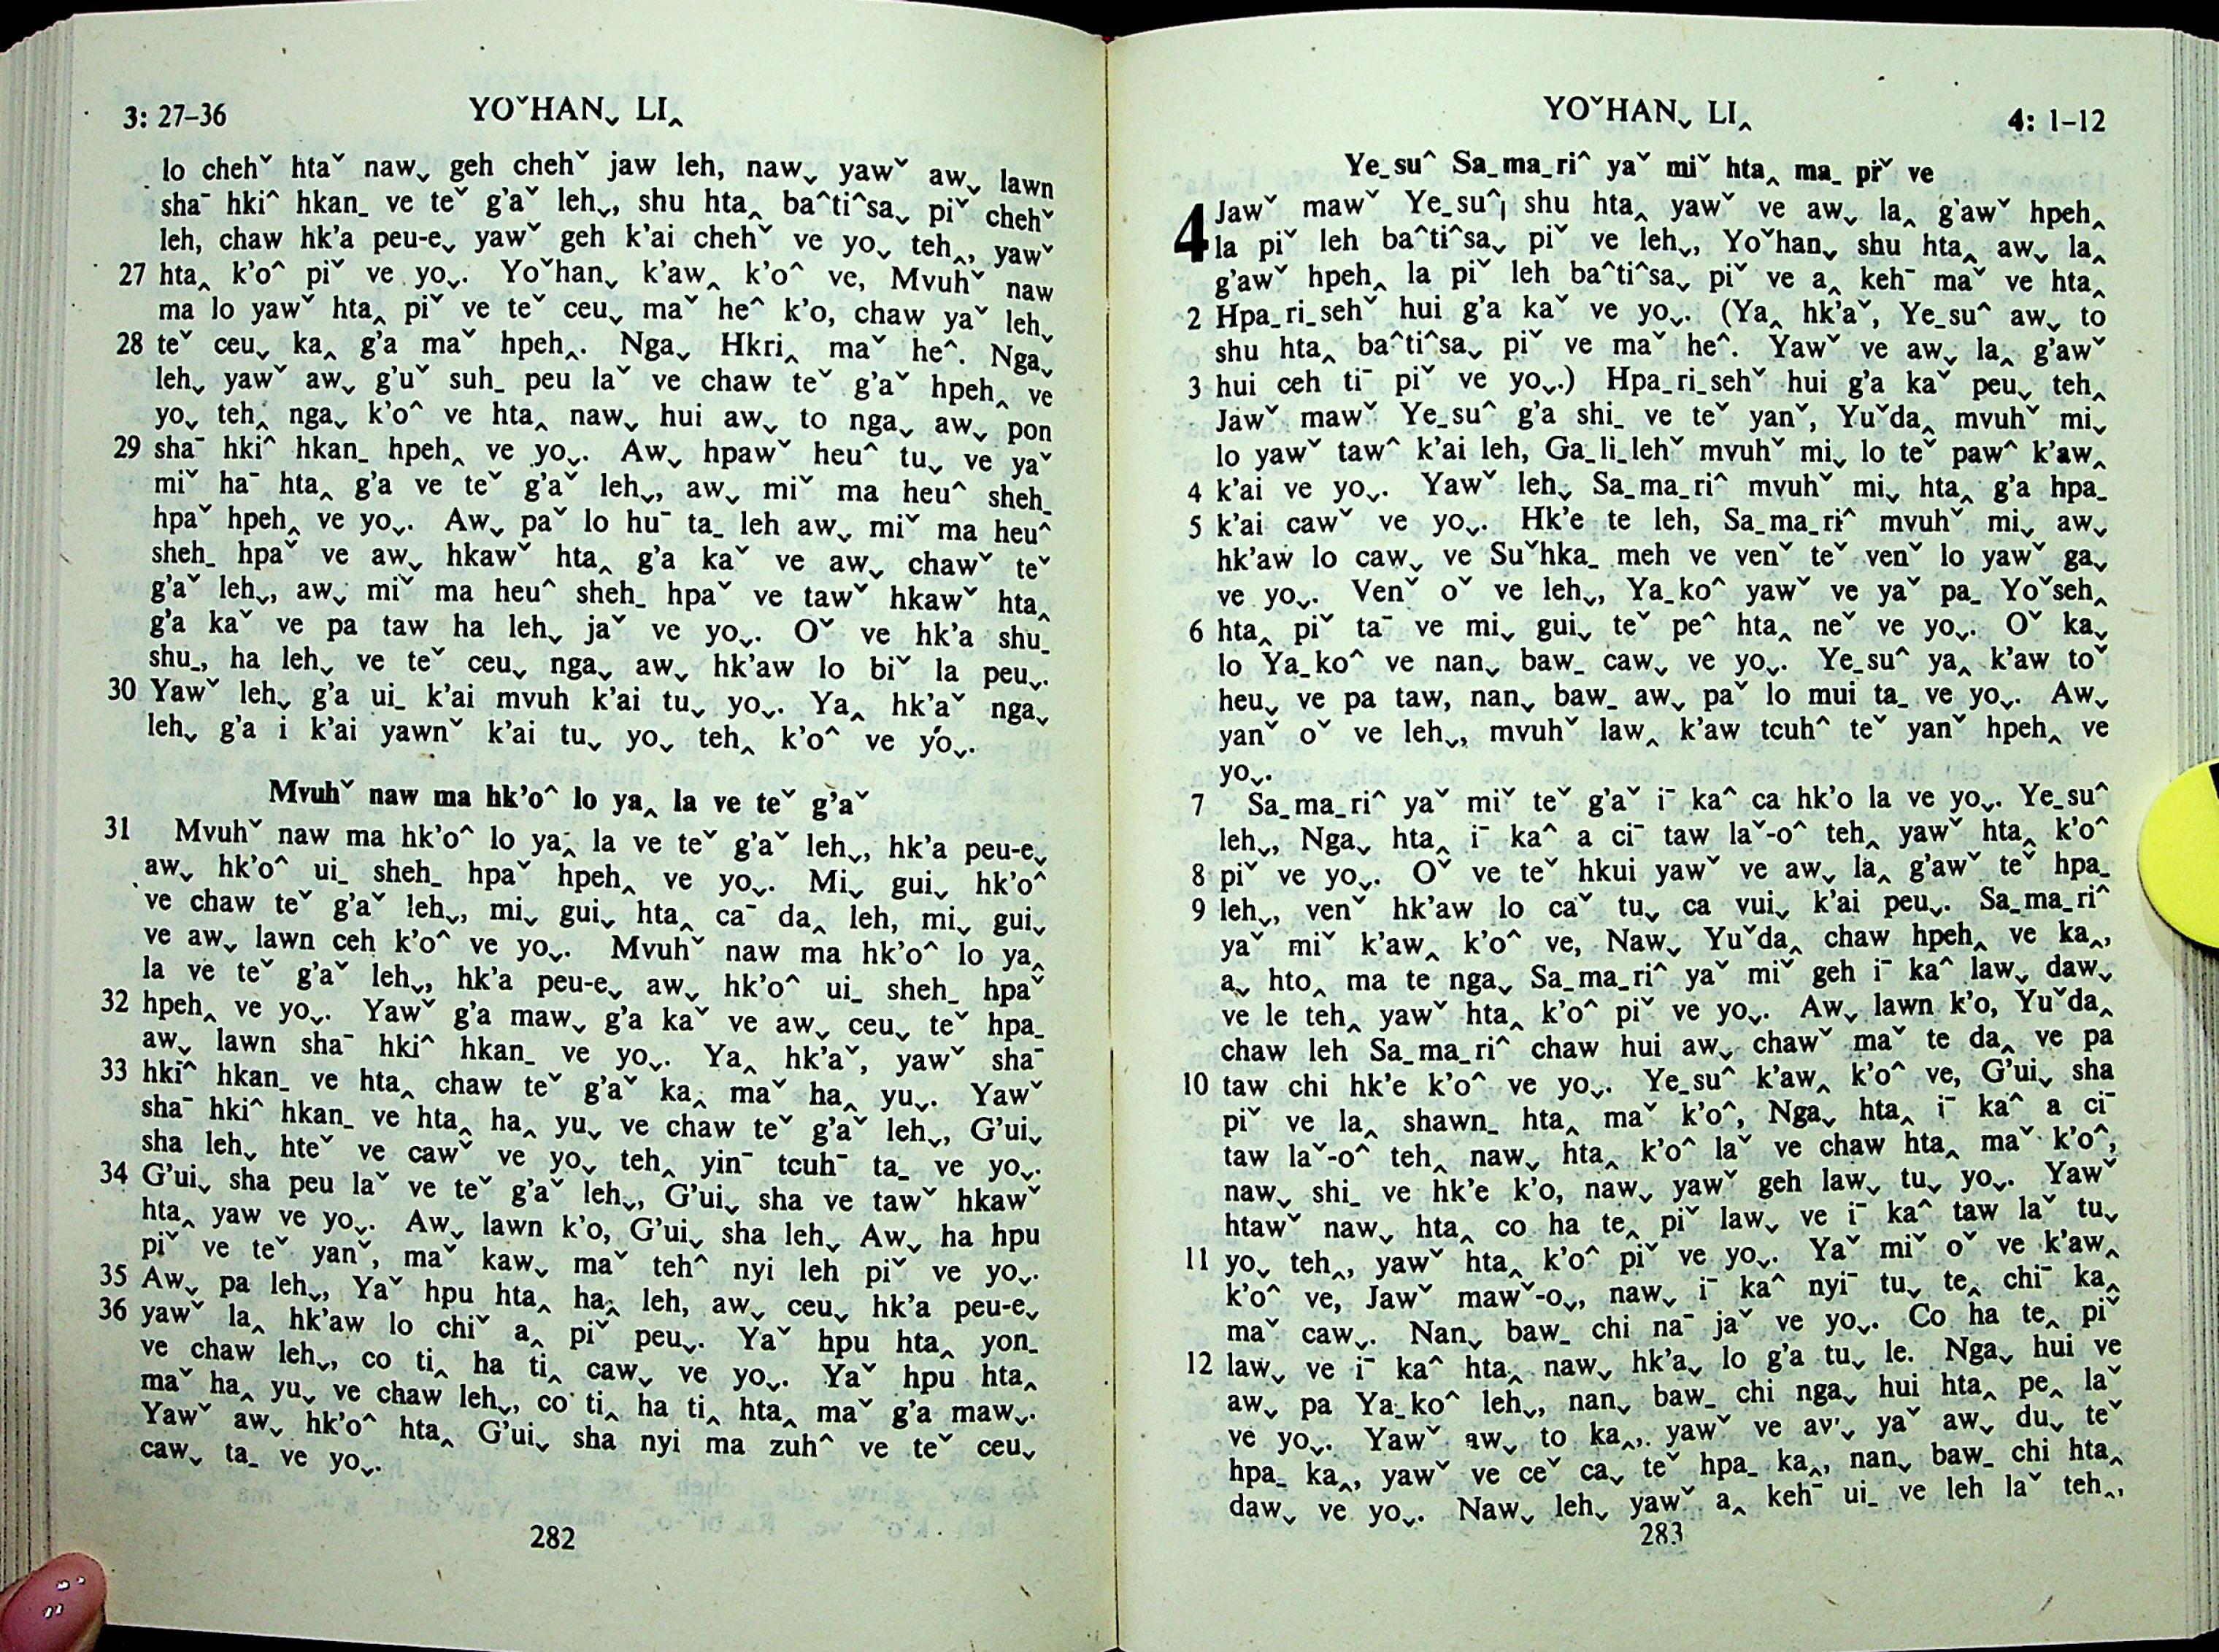 3: 27–36
YOˇHANˬ LI‸
lo chehˇ htaˇ nawˬ geh chehˇ jaw leh, nawˬ yawˇ awˬ lawn
shaˉ hkiˆ hkanˍ ve teˇ g'aˇ lehˬ, shu hta‸ baˆtiˆsaˬ piˇ chehˇ
leh, chaw hk'a peu-eˬ yawˇ geh k'ai chehˇ ve yoˬ teh‸, yawˇ
27 hta‸ k'oˆ piˇ ve yoˬ. Yoˇhanˬ k'aw‸ k'oˆ ve, Mvuhˇ naw
ma lo yawˇ hta‸ piˇ ve teˇ ceuˬ maˇ heˆ k'o, chaw yaˇ lehˬ
28 teˇ ceuˬ ka‸ g'a maˇ hpeh‸. Ngaˬ Hkri‸ maˇ heˆ. Ngaˬ
lehˬ yawˇ awˬ g'uˇ suhˍ peu laˇ ve chaw teˇ g'aˇ hpeh‸ ve
yoˬ teh‸ ngaˬ k'oˆ ve hta‸ nawˬ hui awˬ to ngaˬ awˬ pon
29 shaˉ hkiˆ hkanˍ hpeh‸ ve yoˬ. Awˬ hpawˇ heuˆ tuˬ ve yaˇ
miˇ haˉ hta‸ g'a ve teˇ g'aˇ lehˬ, awˬ miˇ ma heuˆ shehˍ
hpaˇ hpeh‸ ve yoˬ. Awˬ paˇ lo huˉ taˍ leh awˬ miˇ ma heuˆ
shehˍ hpaˇ ve awˬ hkawˇ hta‸ g'a kaˇ ve awˬ chawˇ teˇ
g'aˇ lehˬ, awˬ miˇ ma heuˆ shehˍ hpaˇ ve tawˇ hkawˇ hta‸
g'a kaˇ ve pa taw ha lehˬ jaˇ ve yoˬ. Oˇ ve hk'a shuˍ
shuˍ, ha lehˬ ve teˇ ceuˬ ngaˬ awˬ hk'aw lo biˇ la peuˬ.
30 Yawˇ lehˬ g'a uiˍ k'ai mvuh k'ai tuˬ yoˬ. Ya‸ hk'aˇ ngaˬ
lehˬ g'a i k'ai yawnˇ k'ai tuˬ yoˬ teh‸ k'oˆ ve yoˬ.
Mvuhˇ naw ma hk'oˆ lo ya‸ la ve teˇ g'aˇ
31 Mvuhˇ naw ma hk'oˆ lo ya‸ la ve teˇ g'aˇ lehˬ, hk'a peu-eˬ
awˬ hk'oˆ uiˍ shehˍ hpaˇ hpeh‸ ve yoˬ. Miˬ guiˬ hk'oˆ
ve chaw teˇ g'aˇ lehˬ, miˬ guiˬ hta‸ caˉ da‸ leh, miˬ guiˬ
ve awˬ lawn ceh k'oˆ ve yoˬ. Mvuhˇ naw ma hk'oˆ lo ya‸
la ve teˇ g'aˇ lehˬ, hk'a peu-eˬ awˬ hk'oˆ uiˍ shehˍ hpaˇ
32 hpeh‸ ve yoˬ. Yawˇ g'a mawˬ g'a kaˇ ve awˬ ceuˬ teˇ hpaˍ
awˬ lawn shaˉ hkiˆ hkanˍ ve yoˬ. Ya‸ hk'aˇ, yawˇ shaˉ
33 hkiˆ hkanˍ ve hta‸ chaw teˇ g'aˇ ka‸ maˇ ha‸ yuˬ. Yawˇ
shaˉ hkiˆ hkanˍ ve hta‸ ha‸ yuˬ ve chaw teˇ g'aˇ lehˬ, G'uiˬ
sha lehˬ hteˇ ve cawˇ ve yoˬ teh‸ yinˉ tcuhˉ taˍ ve yoˬ.
34 G'uiˬ sha peu laˇ ve teˇ g'aˇ lehˬ, G'uiˬ sha ve tawˇ hkawˇ
hta‸ yaw ve yoˬ. Awˬ lawn k'o, G'uiˬ sha lehˬ Awˬ ha hpu
piˇ ve teˇ yanˇ, maˇ kawˬ maˇ tehˆ nyi leh piˇ ve yoˬ.
35 Awˬ pa lehˬ, Yaˇ hpu hta‸ ha‸ leh, awˬ ceuˬ hk'a peu-eˬ
36 yawˇ la‸ hk'aw lo chiˇ a‸ piˇ peuˬ. Yaˇ hpu hta‸ yonˍ
ve chaw lehˬ, co ti‸ ha ti‸ cawˬ ve yoˬ. Yaˇ hpu hta‸
maˇ ha‸ yuˬ ve chaw lehˬ, co ti‸ ha ti‸ hta‸ maˇ g'a mawˬ.
Yawˇ awˬ hk'oˆ hta‸ G'uiˬ sha nyi ma zuhˆ ve teˇ ceuˬ
cawˬ taˍ ve yoˬ.
282
YOˇHANˬ LI‸
4: 1–12
Yeˍsuˆ Saˍmaˍriˆ yaˇ miˇ hta‸ maˍ piˇ ve
4 Jawˇ mawˇ Yeˍsuˆ, shu hta‸ yawˇ ve awˬ la‸ g'awˇ hpeh‸
la piˇ leh baˆtiˆsaˬ piˇ ve lehˬ, Yoˇhanˬ shu hta‸ awˬ la‸
g'awˇ hpeh‸ la piˇ leh baˆtiˆsaˬ piˇ ve a‸ kehˉ maˇ ve hta‸
2 Hpaˍriˍsehˇ hui g'a kaˇ ve yoˬ. (Ya‸ hk'aˇ, Yeˍsuˆ awˬ to
shu hta‸ baˆtiˆsaˬ piˇ ve maˇ heˆ. Yawˇ ve awˬ la‸ g'awˇ
3 hui ceh tiˉ piˇ ve yoˬ.) Hpaˍriˍsehˇ hui g'a kaˇ peuˬ teh‸
Jawˇ mawˇ Yeˍsuˆ g'a shiˍ ve teˇ yanˇ, Yuˇda‸ mvuhˇ miˬ
lo yawˇ tawˆ k'ai leh, Gaˍliˍlehˇ mvuhˇ miˬ lo teˇ pawˆ k'aw‸
4 k'ai ve yoˬ. Yawˇ lehˬ Saˍmaˍriˆ mvuhˇ miˬ hta‸ g'a hpaˍ
5 k'ai cawˇ ve yoˬ. Hk'e te leh, Saˍmaˍriˆ mvuhˇ miˬ awˬ
hk'aw lo cawˬ ve Suˇhkaˍ meh ve venˇ teˇ venˇ lo yawˇ gaˬ
ve yoˬ. Venˇ oˇ ve lehˬ, Yaˍkoˆ yawˇ ve yaˇ paˍ Yoˇseh‸
6 hta‸ piˇ taˉ ve miˬ guiˬ teˇ peˆ hta‸ neˇ ve yoˬ. Oˇ kaˬ
lo Yaˍkoˆ ve nanˬ bawˍ cawˬ ve yoˬ. Yeˍsuˆ ya‸ k'aw toˇ
heuˬ ve pa taw, nanˬ bawˍ awˬ paˇ lo mui taˍ ve yoˬ. Awˬ
yanˇ oˇ ve lehˬ, mvuhˇ law‸ k'aw tcuhˆ teˇ yanˇ hpeh‸ ve
yoˬ.
7 Saˍmaˍriˆ yaˇ miˇ teˇ g'aˇ iˉ kaˆ ca hk'o la ve yoˬ. Yeˍsuˆ
lehˬ, Ngaˬ hta‸ iˉ kaˆ a ciˉ taw laˇ-oˆ teh‸ yawˇ hta‸ k'oˆ
8 piˇ ve yoˬ. Oˇ ve teˇ hkui yawˇ ve awˬ la‸ g'awˇ teˇ hpaˍ
9 lehˬ, venˇ hk'aw lo caˇ tuˬ ca vuiˬ k'ai peuˬ. Saˍmaˍriˆ
yaˇ miˇ k'aw‸ k'oˆ ve, Nawˬ Yuˇda‸ chaw hpeh‸ ve ka‸,
aˬ hto‸ ma te ngaˬ Saˍmaˍriˆ yaˇ miˇ geh iˉ kaˆ lawˬ dawˬ
ve le teh‸ yawˇ hta‸ k'oˆ piˇ ve yoˬ. Awˬ lawn k'o, Yuˇda‸
chaw leh Saˍmaˍriˆ chaw hui awˬ chawˇ maˇ te da‸ ve pa
10 taw chi hk'e k'oˆ ve yoˬ. Yeˍsuˆ k'aw‸ k'oˆ ve, G'uiˬ sha
piˇ ve la‸ shawnˍ hta‸ maˇ k'oˆ, Ngaˬ hta‸ iˉ kaˆ a ciˉ
taw laˇ-oˆ teh‸ nawˬ hta‸ k'oˆ laˇ ve chaw hta‸ maˇ k'oˆ,
nawˬ shiˍ ve hk'e k'o, nawˬ yawˇ geh lawˬ tuˬ yoˬ. Yawˇ
htawˇ nawˬ hta‸ co ha te‸ piˇ lawˬ ve iˉ kaˆ taw laˇ tuˬ
11 yoˬ teh‸, yawˇ hta‸ k'oˆ piˇ ve yoˬ. Yaˇ miˇ oˇ ve k'aw‸
k'oˆ ve, Jawˇ mawˇ-oˬ, nawˬ iˉ kaˆ nyiˉ tuˬ te‸ chiˉ ka‸
maˇ cawˬ. Nanˬ bawˍ chi naˉ jaˇ ve yoˬ. Co ha te‸ piˇ
12 lawˬ ve iˉ kaˆ hta‸ nawˬ hk'aˬ lo g'a tuˬ le. Ngaˬ hui ve
awˬ pa Yaˍkoˆ lehˬ, nanˬ bawˍ chi ngaˬ hui hta‸ pe‸ laˇ
ve yoˬ. Yawˇ awˬ to ka‸, yawˇ ve awˬ yaˇ awˬ duˬ teˇ
hpaˍ ka‸, yawˇ ve ceˇ caˬ teˇ hpaˍ ka‸, nanˬ bawˍ chi hta‸
dawˬ ve yoˬ. Nawˬ lehˬ yawˇ a‸ kehˉ uiˍ ve leh laˇ teh‸,
283